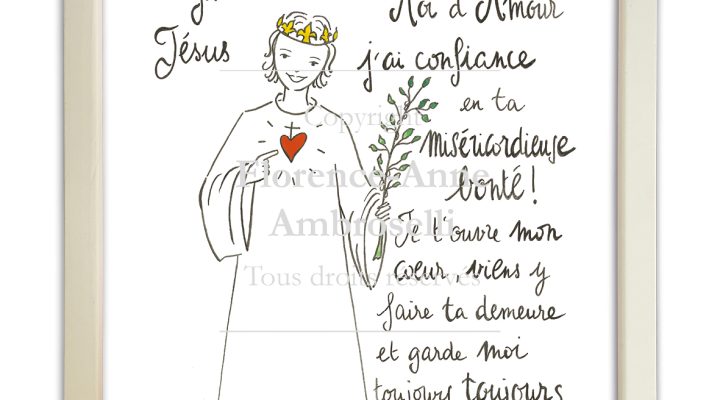 Jésus
Roi d'Amour
j'ai confiance
en ta
miséricordieuse
bonté!
Je t'ouvre mon
coeur, viens y
faire ta demeure
et garde moi
toujours toujours
Copyright
Florence-Anne
Ambroselli
Tous droits réservés